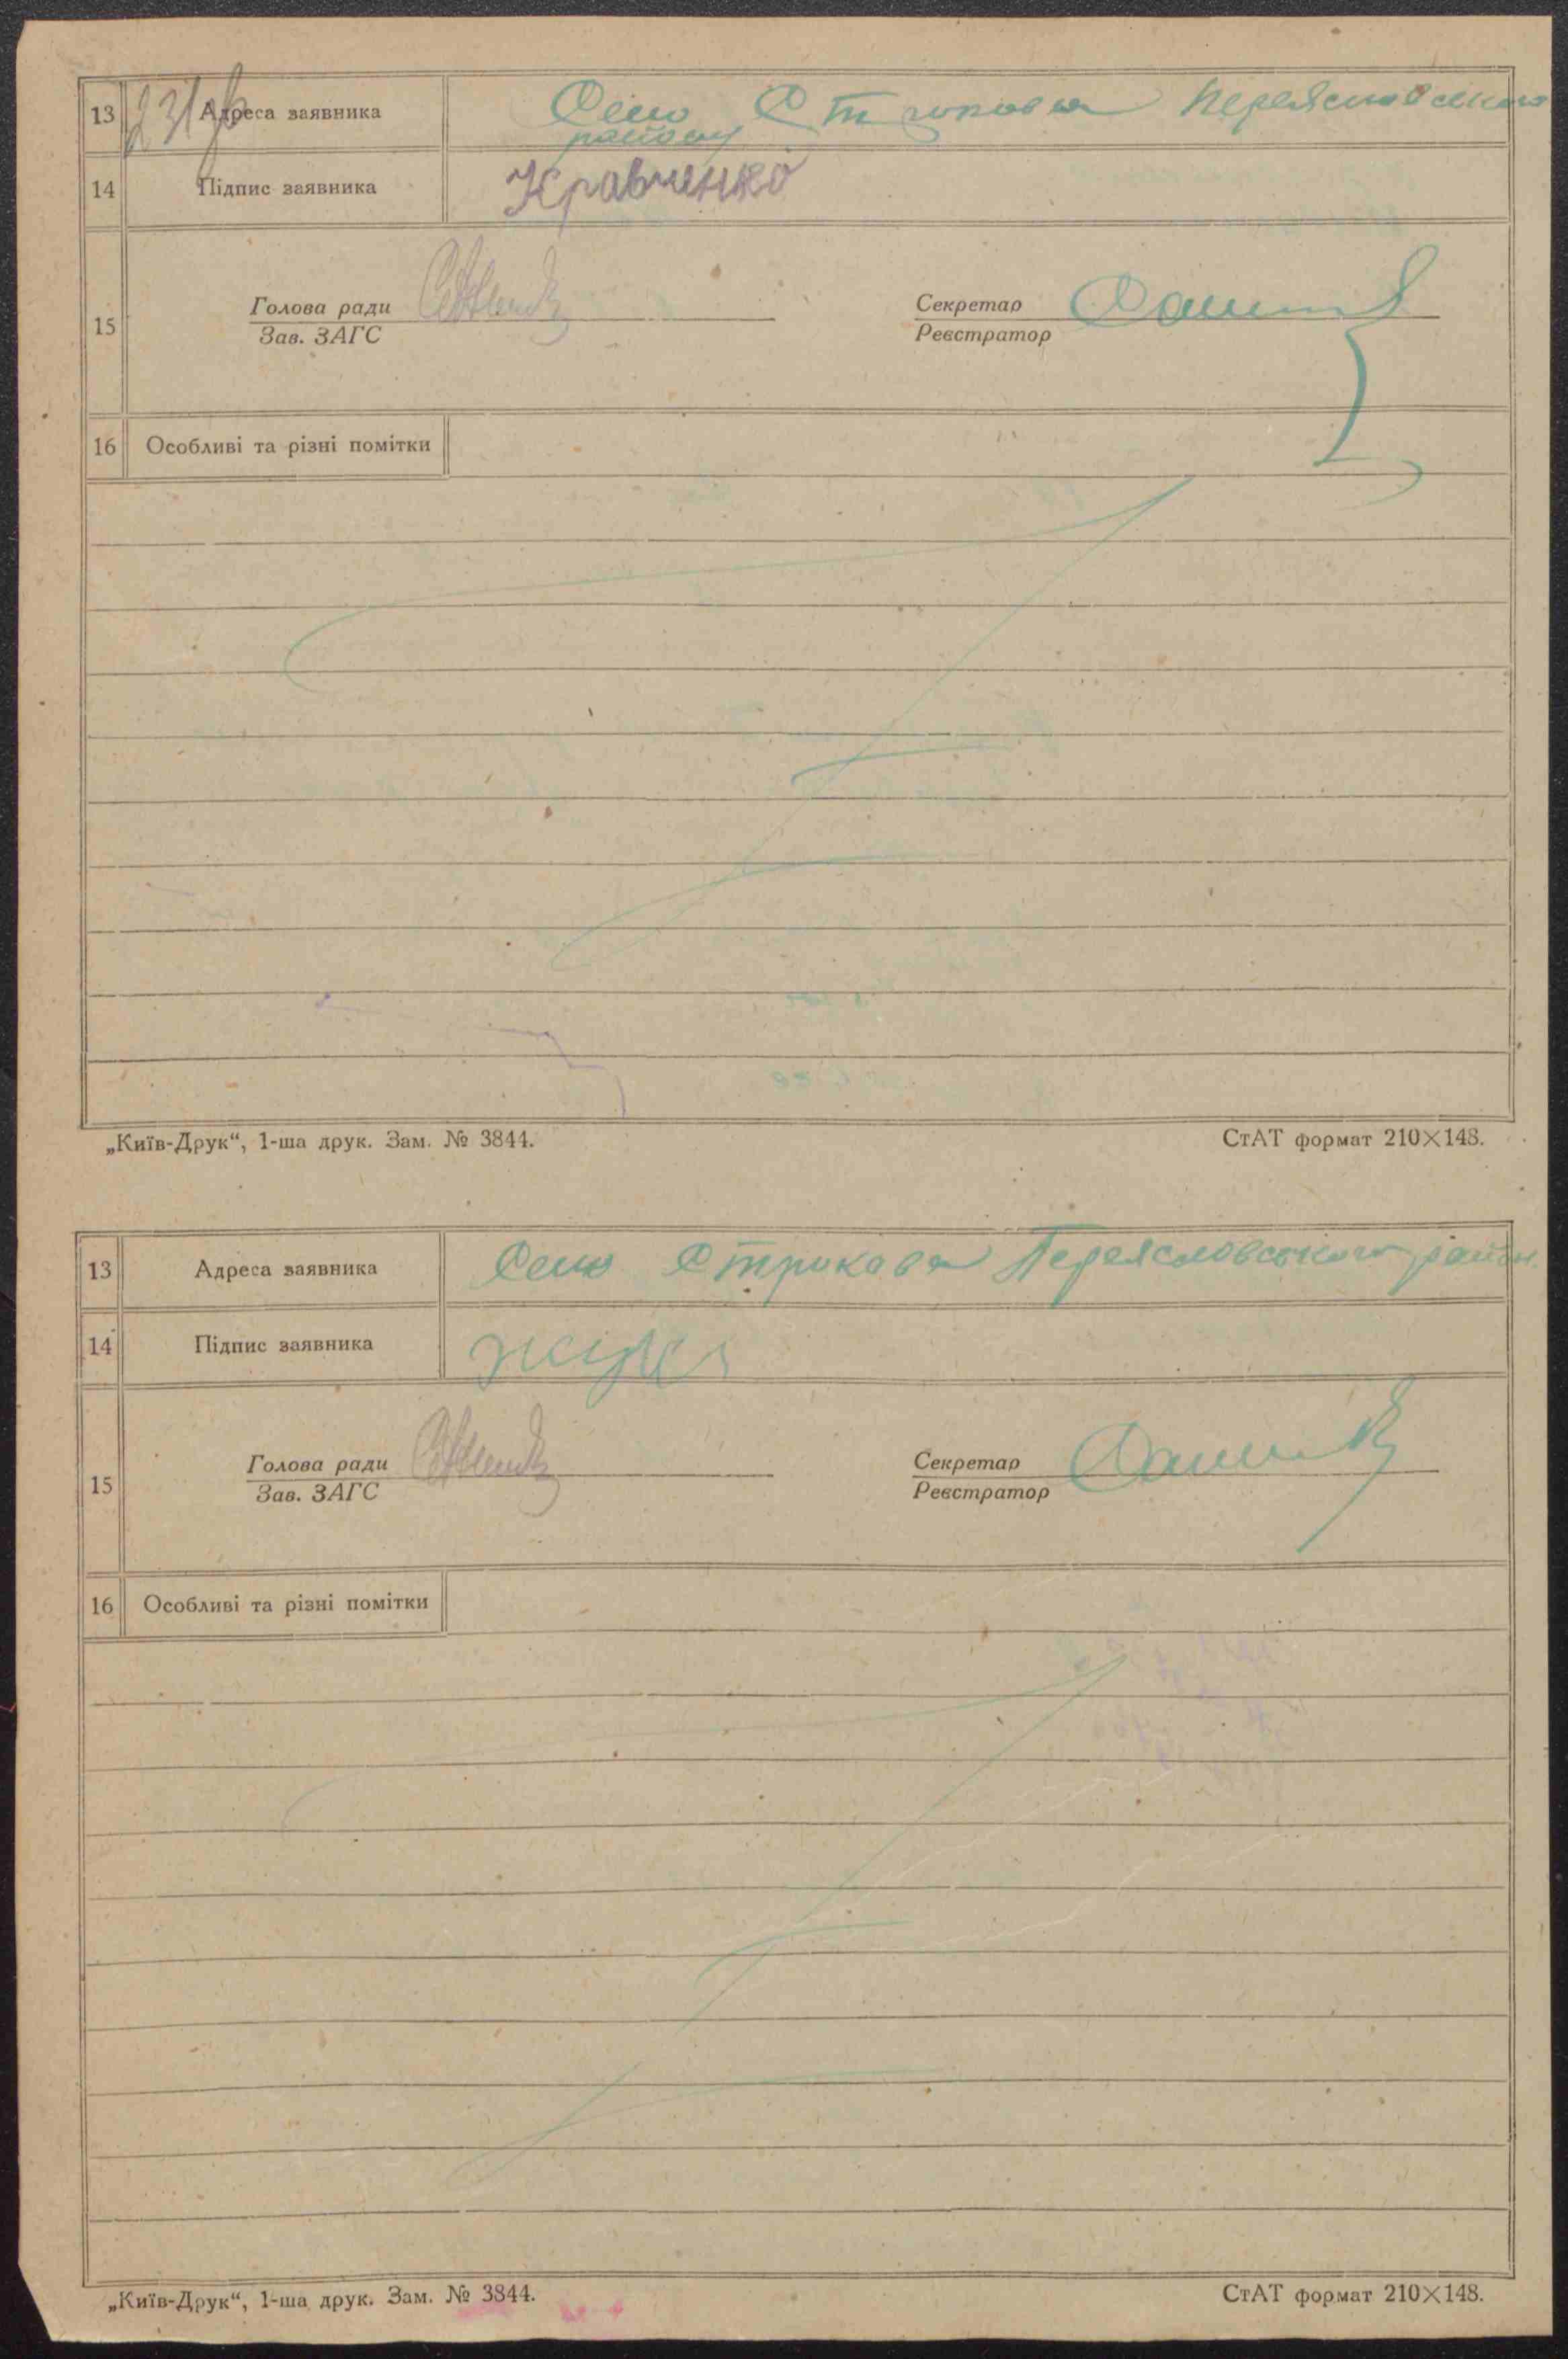 13 Адреса заявника Село Строкова Переяславського
району
14 Підпис заявника Кравченко
15 Голова ради Секретар
Зав. ЗАГС Реєстратор
16 Особливі та різні помітки
„Київ-Друк“, 1-ша друк. Зам. № 3844. СтАТ формат 210×148.
13 Адреса заявника Село Строкова Переяславського район.
14 Підпис заявника
15 Голова ради Секретар
Зав. ЗАГС Реєстратор
16 Особливі та різні помітки
„Київ-Друк“, 1-ша друк. Зам. № 3844. СтАТ формат 210×148.